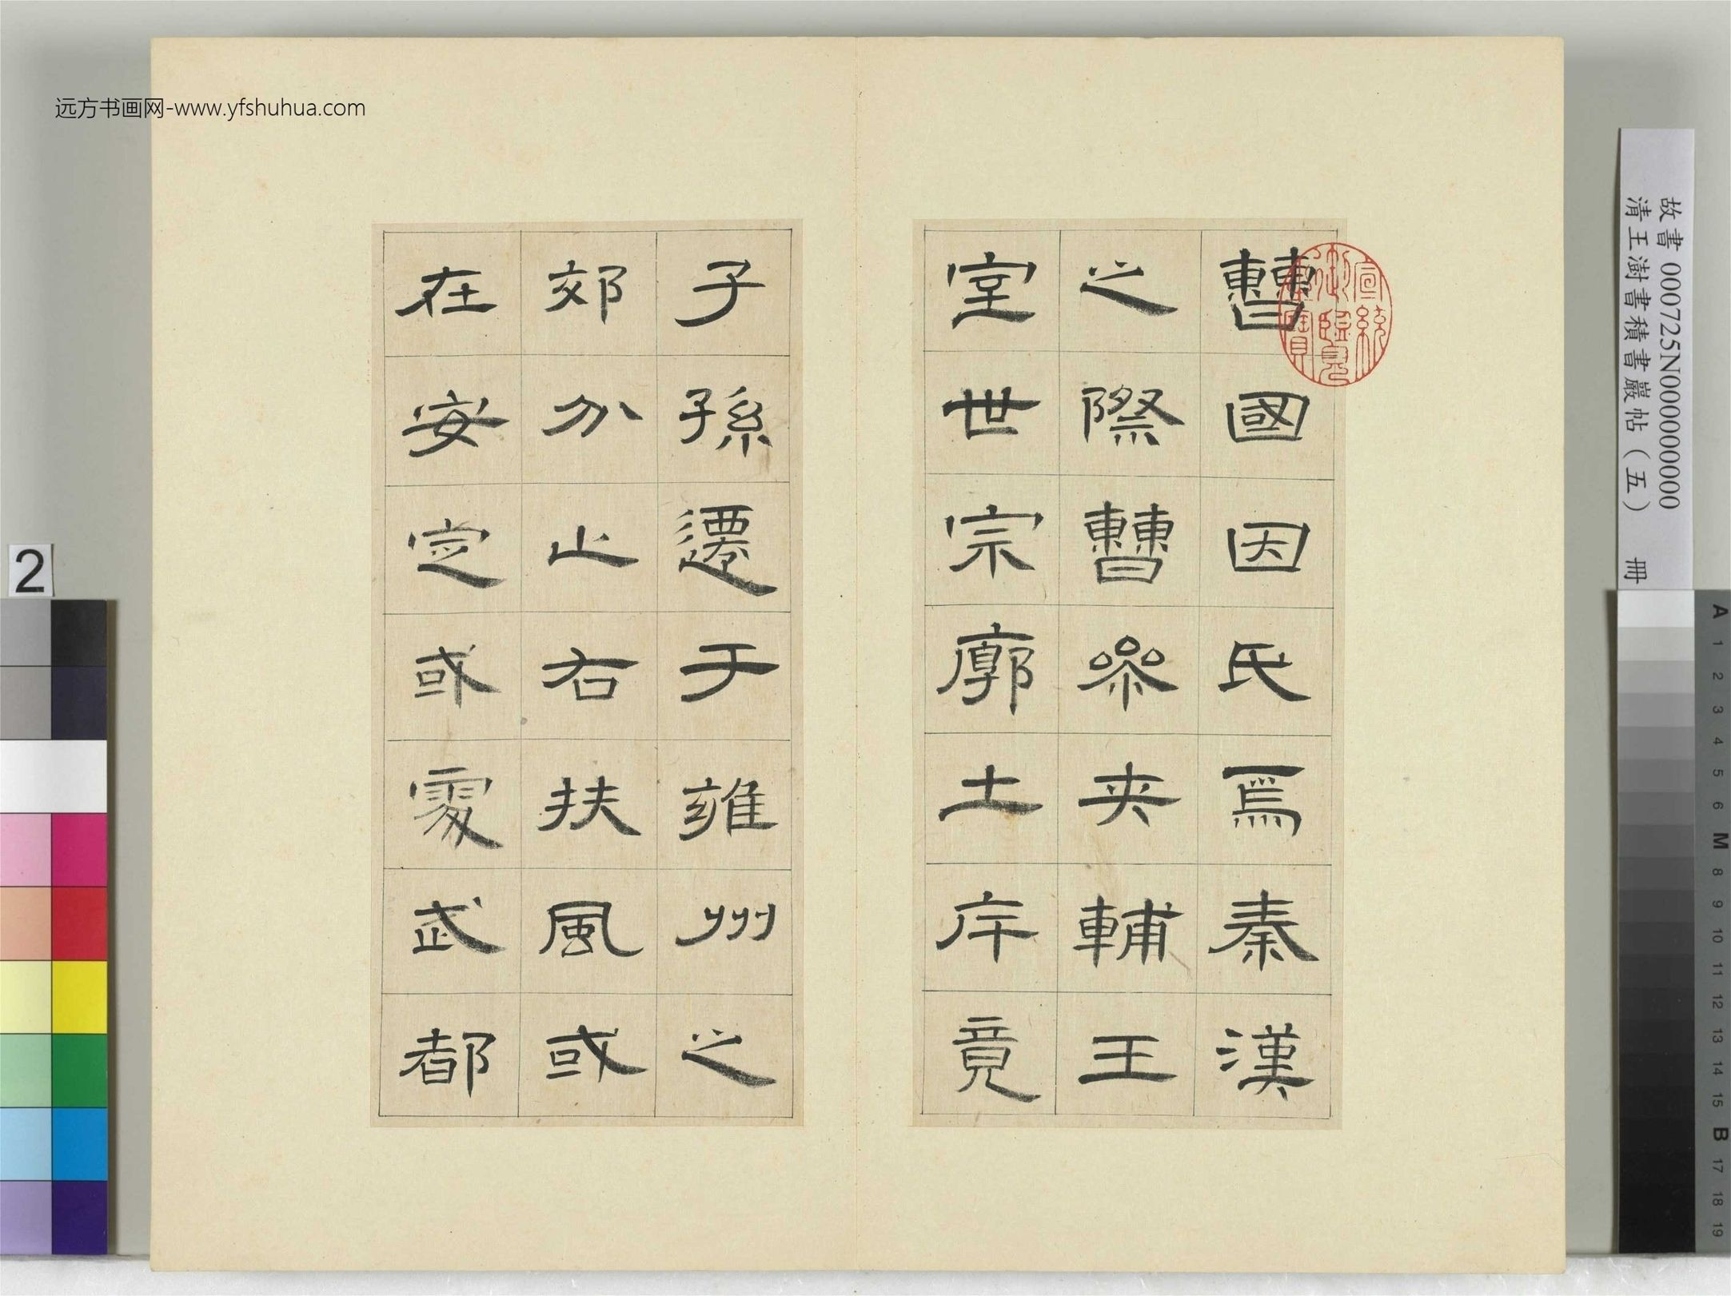 远方书画网-www.yfshuhua.com
曹國因氏焉秦漢
之際曹參夾輔王
室世宗廓土斥竟
子孫遷于雍州之
郊分止右扶風或
在安定或處武都
宣統
御覽
之寶
故書 000725N000000000
清王澍書積書巖帖（五） 冊
2
A
1
2
3
4
5
6
M
8
9
10
11
12
13
14
15
B
17
18
19